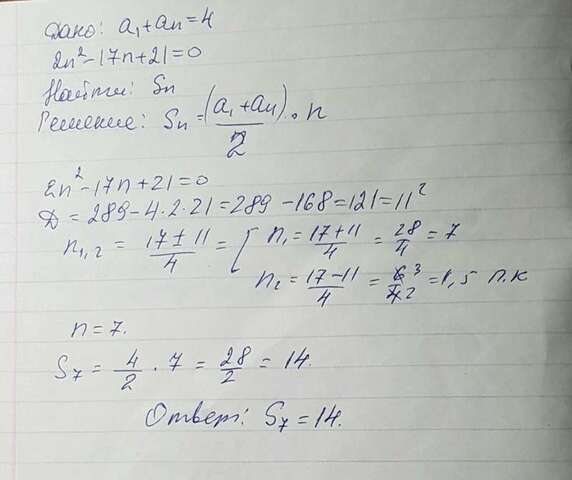 Дано: a₁+aₙ=4
2n²-17n+21=0
Найти: Sₙ
Решение: Sₙ=(a₁+aₙ)/2·n
2n²-17n+21=0
D=289-4·2·21=289-168=121=11²
n₁,₂=(17±11)/4=[n₁=(17+11)/4=28/4=7
n₂=(17-11)/4=6³/4₂=1,5 п.к
n=7.
S₇=4/2·7=28/2=14.
Ответ: S₇=14.